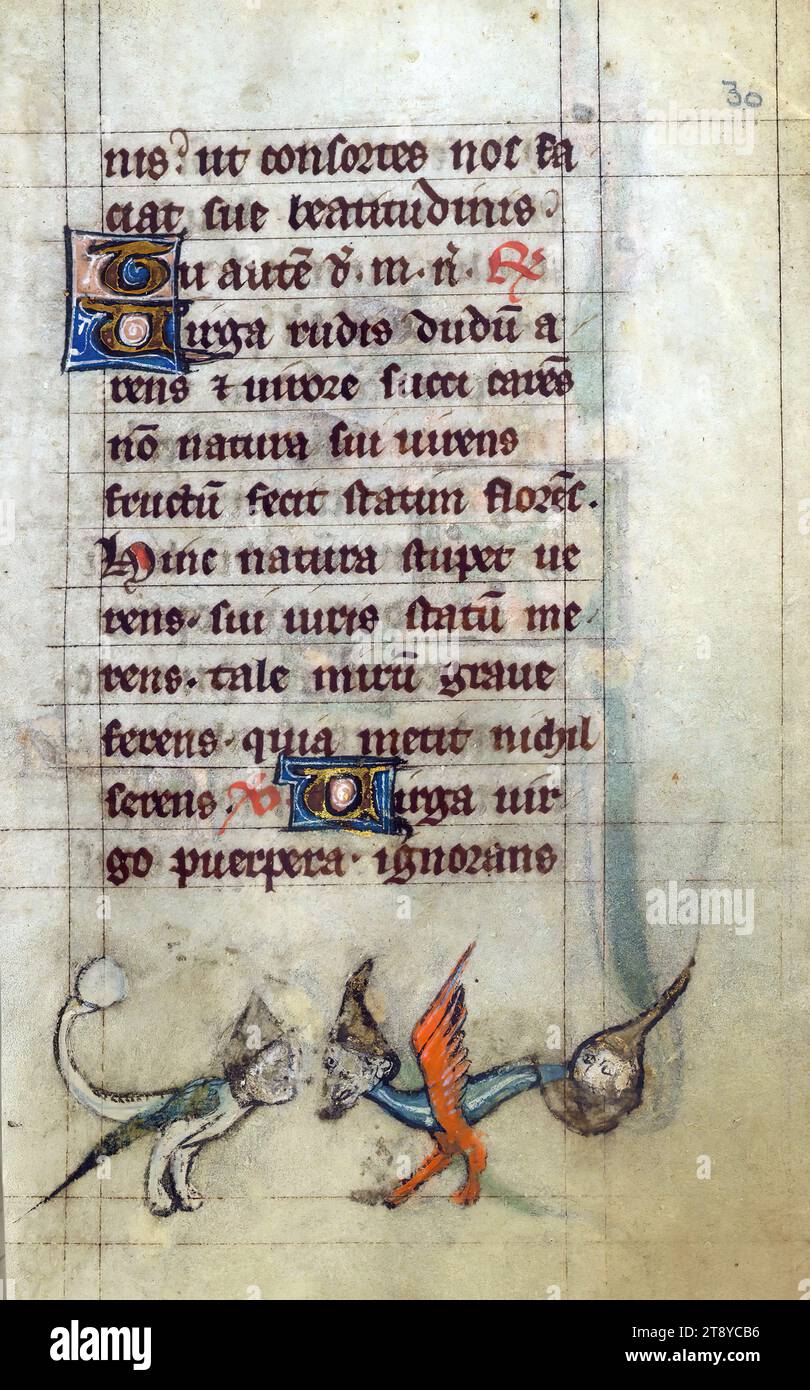 30
nis? ut consortes nos fa
ciat sue beatitudinis?
Tu autē d̄. m. n̄. R̸
Uirga rudis dudū a
rens ⁊ uirore succi carēs
nō natura sui uirens
fructū fecit statim florēs.
Hinc natura stupet ue
rens. sui iuris statū me
rens. tale mirū graue
ferens. quia metit nichil
serens. V̸. Uirga uir
go puerpera. ignorans
alamy
alamy
alamy
alamy
Image ID: 2T8YCB6
www.alamy.com